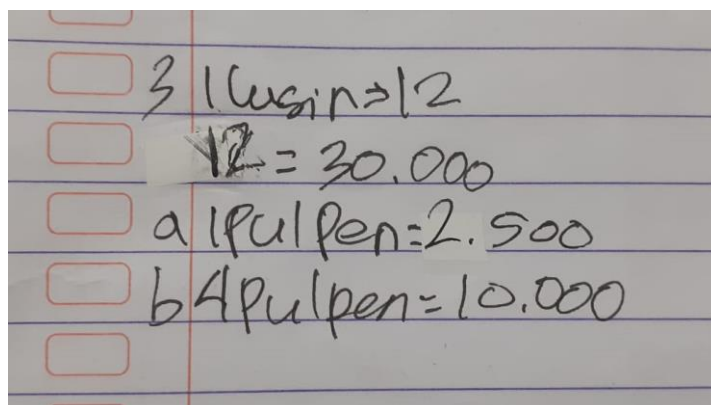 3 1 lusin → 12
12 = 30.000
a 1 pulpen = 2.500
b 4 pulpen = 10.000